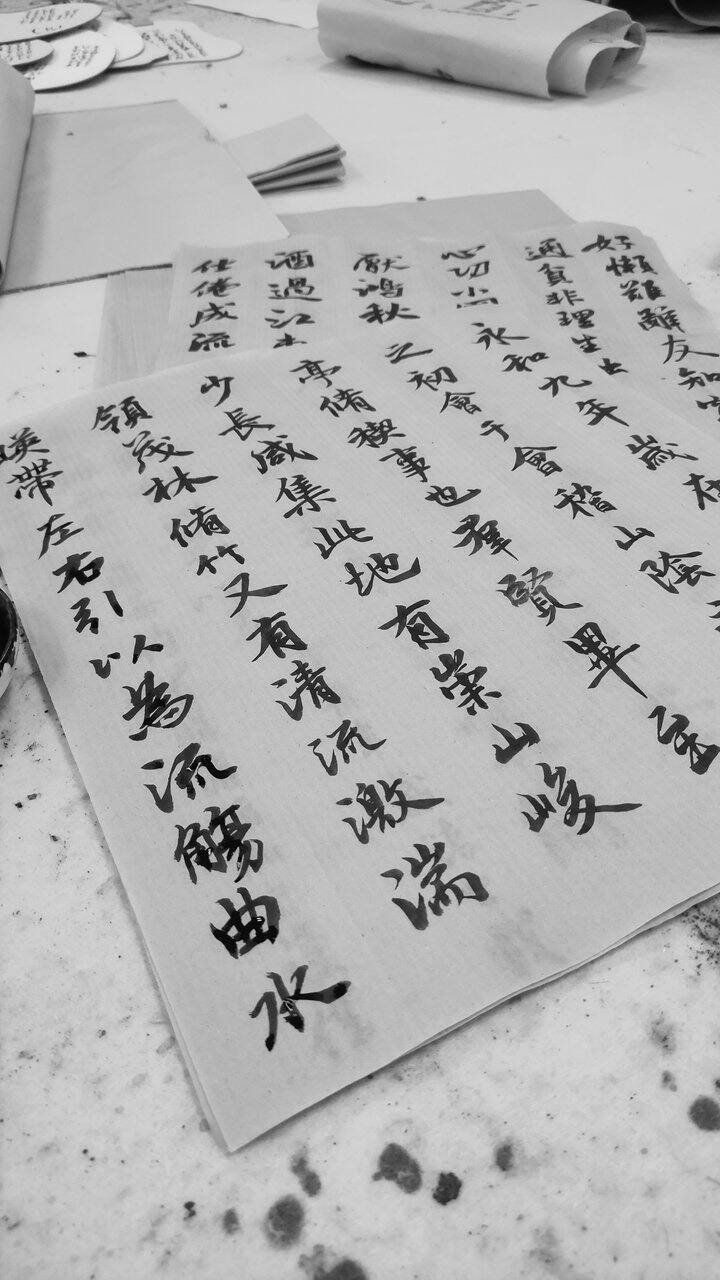 永和九年歲在
之初會于會稽山陰
亭脩稧事也羣賢畢至
少長咸集此地有崇山峻
領茂林脩竹又有清流激湍
暎帶左右引以為流觴曲水
友知
通負非理生
心切
鴻秋
酒過江
仕倦成流